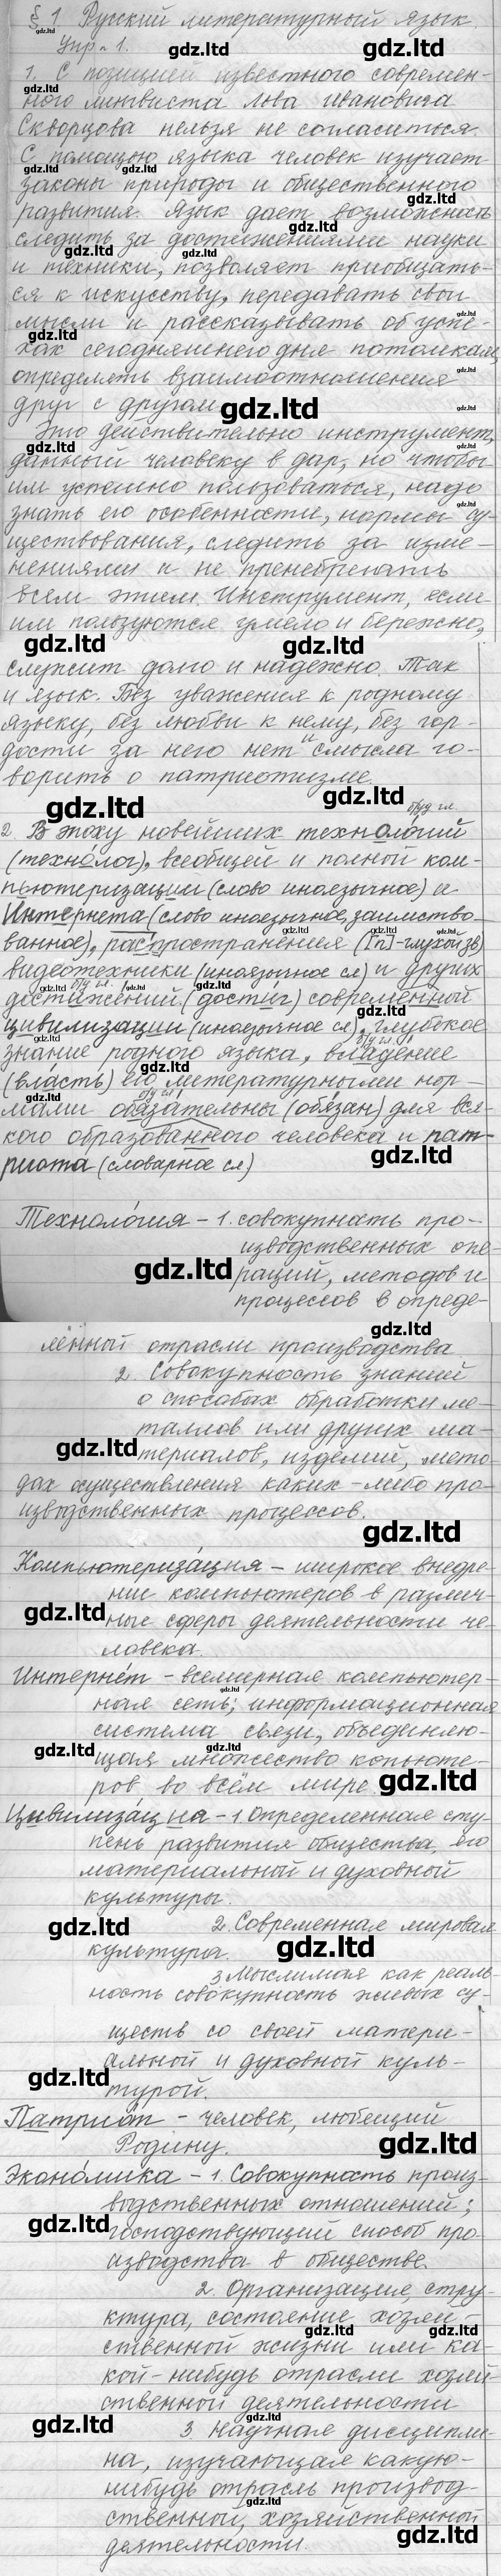 § 1. Русский литературный язык.
Упр. 1.
1. С позицией известного современ-
ного лингвиста Льва Ивановича
Скворцова нельзя не согласиться.
С помощью языка человек изучает
законы природы и общественного
развития. Язык дает возможность
следить за достижениями науки
и техники, позволяет приобщать-
ся к искусству, передавать свои
мысли и рассказывать об успе-
хах сегодняшнего дня потомкам,
определять взаимоотношения
друг с другом.
Это действительно инструмент,
данный человеку в дар, но чтобы
им успешно пользоваться, надо
знать его особенности, нормы су-
ществования, следить за изме-
нениями и не пренебрегать
всем этим. Инструмент, если
им пользуются умело и бережно,
служит долго и надежно. Так
и язык. Без уважения к родному
языку, без любви к нему, без гор-
дости за него нет и смысла го-
ворить о патриотизме.
2. В эпоху новейших технологий
(техно́лог), всеобщей и полной ком-
пьютеризации (слово иноязычное) и
Интернета (слово иноязычное, заимство-
ванное), распространения ([п]-глухой зв)
видеотехники (иноязычное сл) и других
достижений (дости́г) современной
цивилизации (иноязычное сл), глубокое
знание родного языка, владение
(вла́сть) его литературными нор-
мами обязательны (обя́зан) для вся-
кого образованного человека и пат-
риота (словарное сл)
Техноло́гия – 1. совокупность про-
изводственных опе-
раций, методов и
процессов в опреде-
лённой отрасли производства.
2. Совокупность знаний
о способах обработки ме-
таллов или других ма-
териалов, изделий, мето-
дах осуществления каких-либо про-
изводственных процессов.
Компьютериза́ция – широкое внедре-
ние компьютеров в различ-
ные сферы деятельности че-
ловека.
Интерне́т – всемирная компьютер-
ная сеть; информационная
система связи, объединяю-
щая множество копьюте-
ров во всём мире.
Цивилиза́ция – 1. Определенная сту-
пень развития общества, его
материальной и духовной
культуры.
2. Современная мировая
культура.
3. Мыслимая как реаль-
ность совокупность живых су-
ществ со своей матери-
альной и духовной куль-
турой.
Патрио́т – человек, любящий
Родину.
Эконо́мика – 1. Совокупность произ-
водственных отношений;
господствующий способ про-
изводства в обществе.
2. Организация, стру-
ктура, состояние хозяй-
ственной жизни или ка-
кой-нибудь отрасли хозяй-
ственной деятельности
3. Научная дисципли-
на, изучающая какую-
нибудь отрасль производ-
ственной, хозяйственной
деятельности.